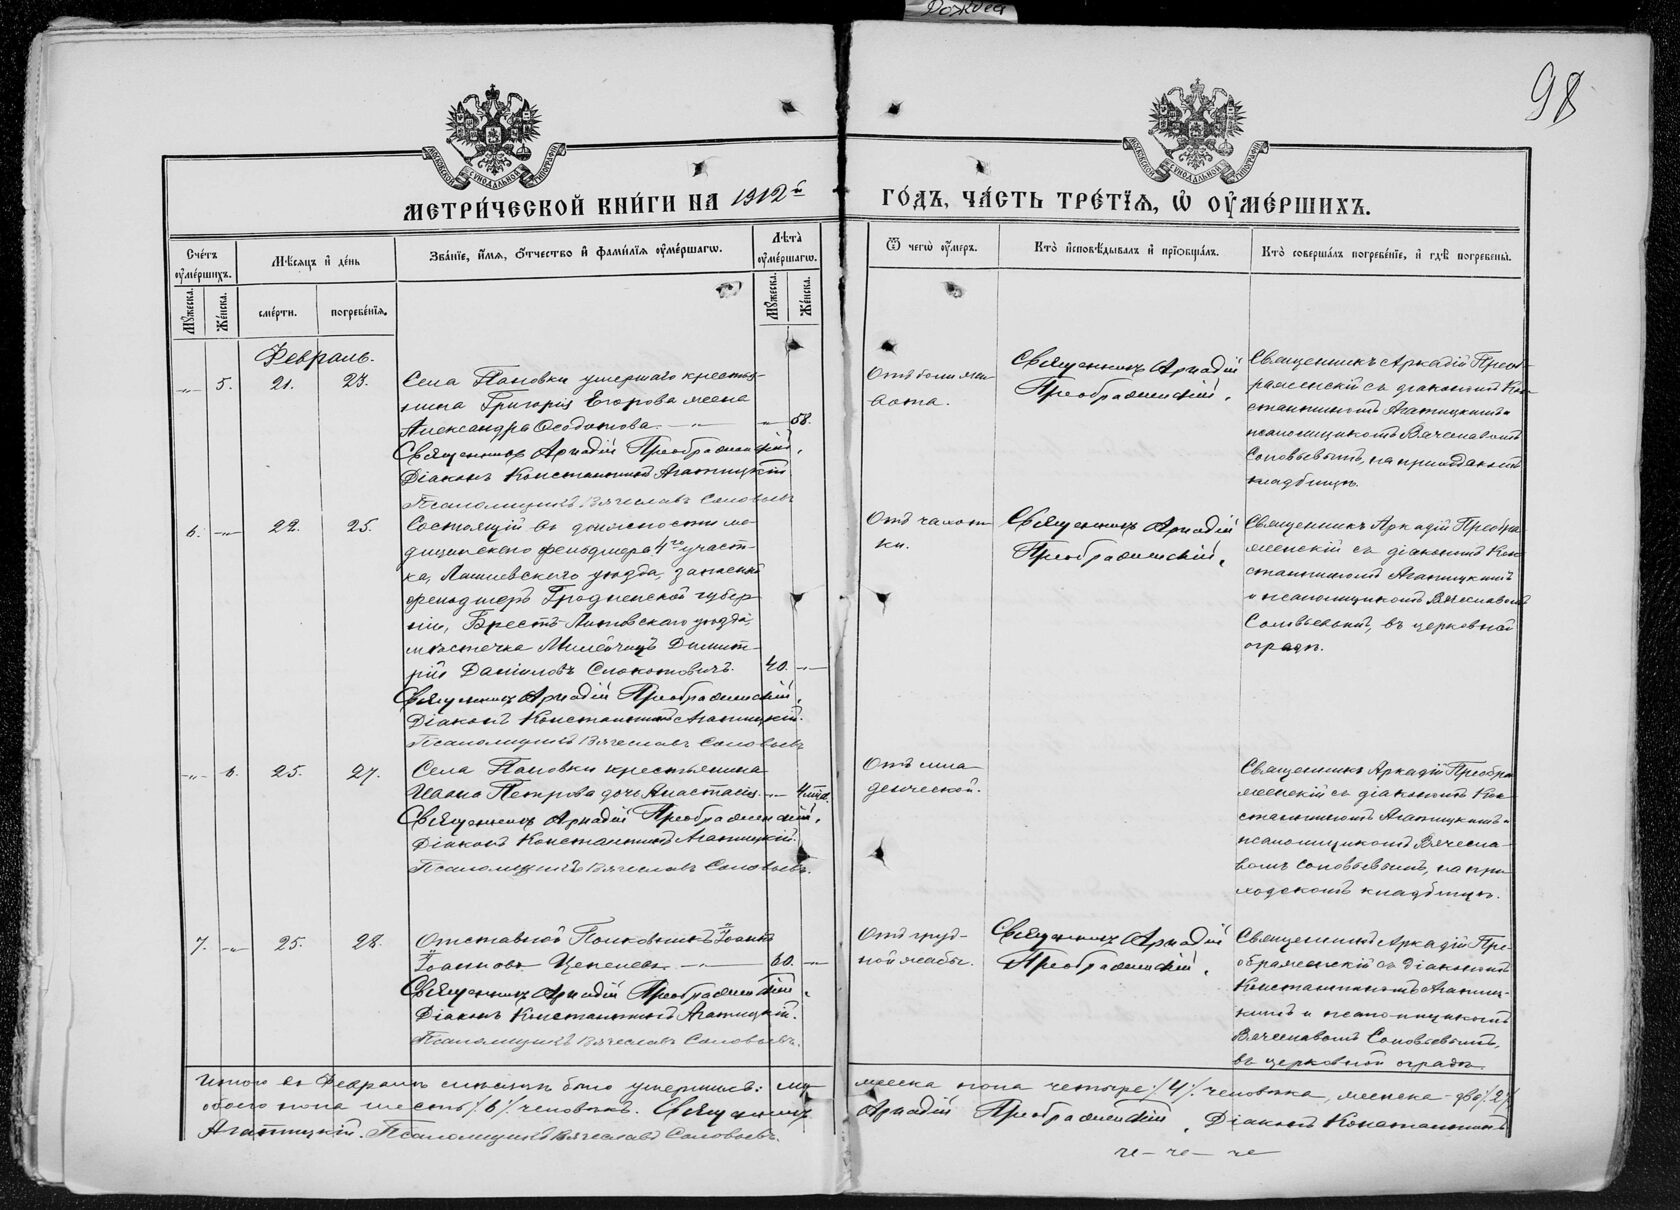 Дождев
98
МОСКОВСКОЙ СѴНОДАЛЬНОЙ ТИПОГРАФІИ
МОСКОВСКОЙ СѴНОДАЛЬНОЙ ТИПОГРАФІИ
МЕТРИ́ЧЕСКОЙ КНИ́ГИ НА 1912й ГО́ДЪ, ЧА́СТЬ ТРЕ́ТІѦ, Ѡ ОУМЕ́РШИХЪ.
Сче́тъ оуме́ршихъ.
Мѣ́сяцъ и де́нь
Зва́ніе, и́мя, о́тчество и фами́лія оуме́ршагѡ.
Лѣ́та оуме́ршагѡ.
Ѿ чегѡ̀ оу́меръ.
Кто̀ и̓сповѣ́дывалъ и̓ прїѡбща́лъ.
Кто̀ соверша́лъ погребе́ніе, и̓ гдѣ̀ погребены̀.
Мꙋ́жеска.
Же́нска.
сме́рти.
погребе́нія.
Мꙋ́жеска.
Же́нска.
Февраль.
-"- 5. 21. 23.
Села Пановки умершаго крестья-
нина Григорія Егорова жена
Александра Ѳеодотова -"- 58.
Священникъ Аркадій Преображенскій.
Діаконъ Константинъ Агатицкій
Псаломщикъ Вячеславъ Соловьевъ
Отъ боли жи-
вота.
Священникъ Аркадій
Преображенскій.
Священникъ Аркадій Преоб-
раженскій съ діакономъ Кон-
стантиномъ Агатицкимъ и
псаломщикомъ Вячеславомъ
Соловьевымъ, на приходскомъ
кладбищѣ.
6. -"- 22. 25.
Состоящій въ должности ме-
дицинскаго фельдшера 4го участ-
ка, Лаишевскаго уѣзда, запасный
фельдшеръ Гродненской губер-
ніи, Брестъ-Литовскаго уѣзда,
мѣстечка Милейчицъ Димит-
рій Даніиловъ Слокотовичъ. 40. -"-
Священникъ Аркадій Преображенскій.
Діаконъ Константинъ Агатицкій.
Псаломщикъ Вячеславъ Соловьевъ
Отъ чахот-
ки.
Священникъ Аркадій
Преображенскій.
Священникъ Аркадій Преобра-
женскій съ діакономъ Кон-
стантиномъ Агатицкимъ
и псаломщикомъ Вячеславомъ
Соловьевымъ, въ церковной
оградѣ.
-"- 6. 25. 27.
Села Пановки крестьянина
Ивана Петрова дочь Анастасія. -"-
Священникъ Аркадій Преображенскій.
Діаконъ Константинъ Агатицкій.
Псаломщикъ Вячеславъ Соловьевъ.
Отъ мла-
денческой.
Священникъ Аркадій Преобра-
женскій съ діакономъ Кон-
стантиномъ Агатицкимъ и
псаломщикомъ Вячесла-
вомъ Соловьевымъ, на при-
ходскомъ кладбищѣ.
7. -"- 25. 28.
Отставной Полковникъ Іоаннъ
Іоанновъ 60. -"-
Священникъ Аркадій Преображенскій.
Діаконъ Константинъ Агатицкій.
Псаломщикъ Вячеславъ Соловьевъ.
Отъ груд-
ной жабы.
Священникъ Аркадій
Преображенскій.
Священникъ Аркадій Пре-
ображенскій съ діакономъ
Константиномъ Агатиц-
кимъ и псаломщикомъ
Вячеславомъ Соловьевымъ,
въ церковной оградѣ.
Итого въ Февралѣ мѣсяцѣ было умершихъ: му-
жеска пола четыре /4/ человѣка, женска - два /2/
обоего пола шесть /6/ человѣкъ. Священникъ
Аркадій Преображенскій. Діаконъ Константинъ
Агатицкій. Псаломщикъ Вячеславъ Соловьевъ.